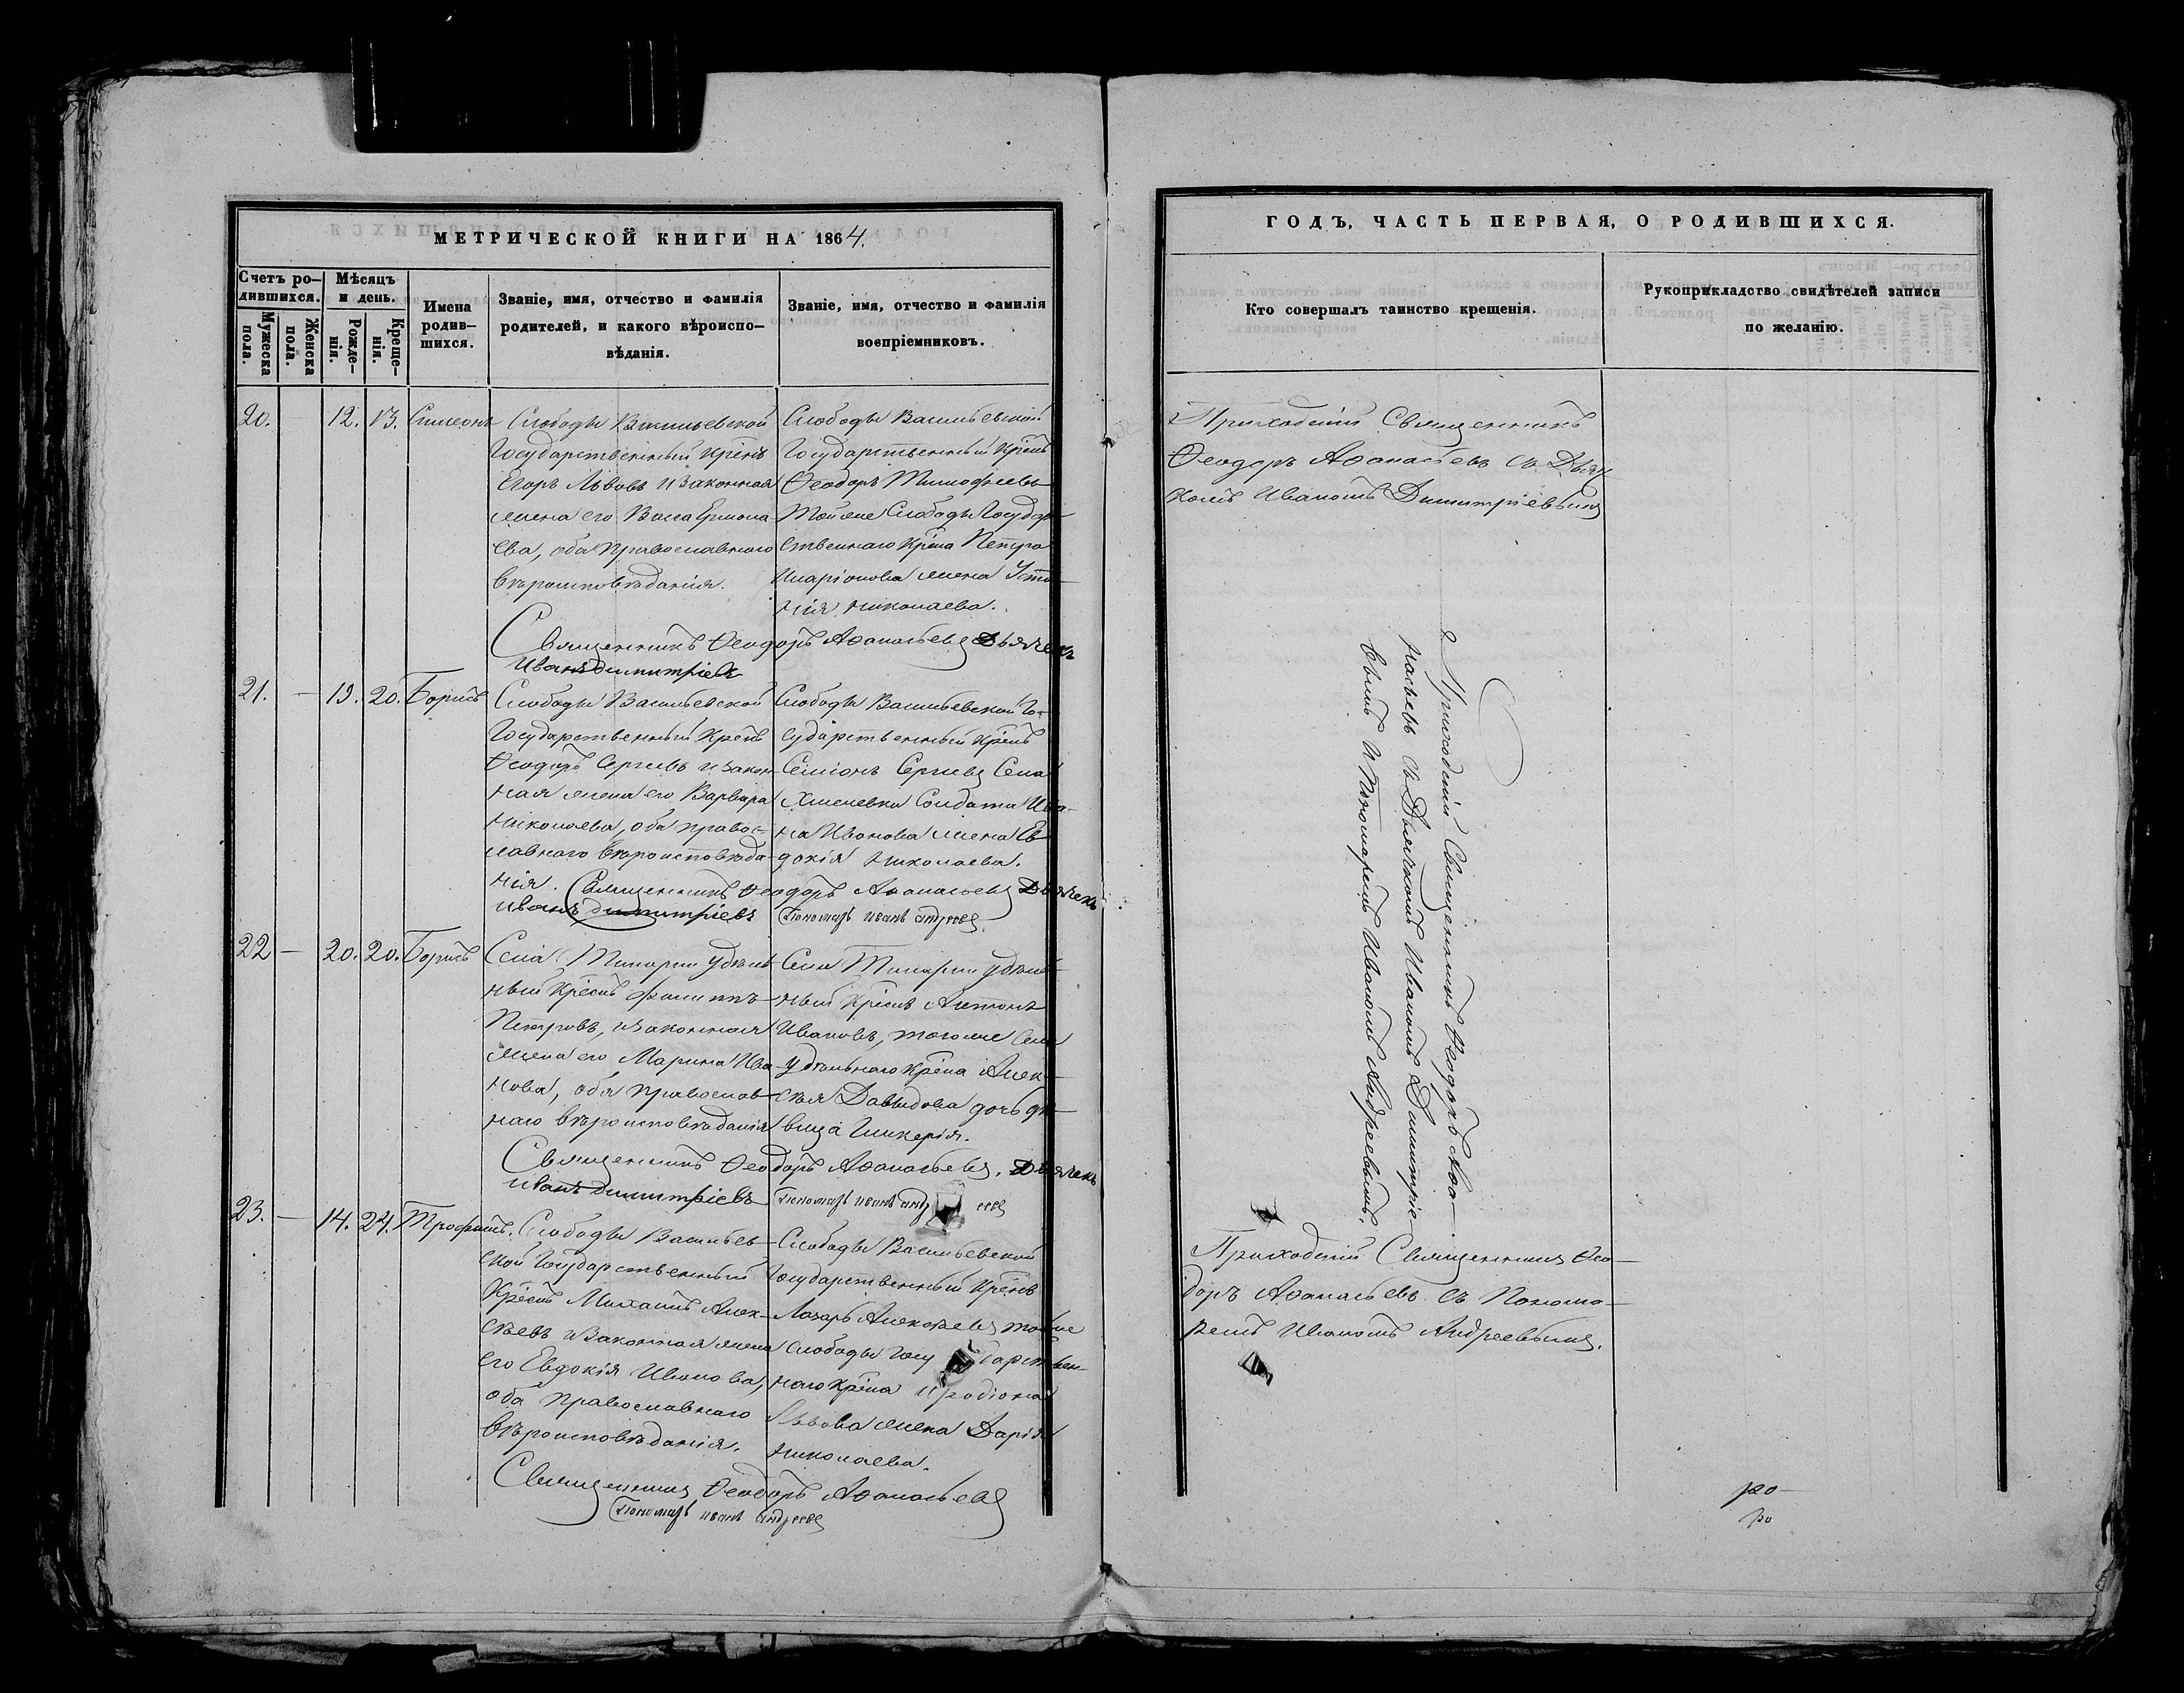 МЕТРИЧЕСКОЙ КНИГИ НА 1864.
Счетъ ро-
дившихся.
Мужеска
пола.
Женска
пола.
Мѣсяцъ
и день.
Рожде-
нія.
Креще-
нія.
Имена
родив-
шихся.
Званіе, имя, отчество и фамилія
родителей, и какого вѣроиспо-
вѣданія.
Званіе, имя, отчество и фамилія
воспріемниковъ.
20. — 12. 13. Симеонъ
Слободы Васильевской
Государственный Крѣнъ
Егоръ Львовъ и законная
жена его Васса Ермола-
ева, оба православнаго
вѣроисповѣданія.
Слободы Васильевской
Государственный Крѣнъ
Ѳеодоръ Тимофѣевъ
Той же Слободы Государ-
ственнаго Крѣна Петра
Иларіонова жена Усти-
нія Николаева.
Священникъ Ѳеодоръ Аѳанасьевъ Дьячекъ
Иванъ Димитріевъ
21. — 19. 20. Борисъ
Слободы Васильевской
Государственный Крѣнъ
Ѳеодоръ Сергѣевъ и закон-
ная жена его Варвара
Николаева, оба правос-
лавнаго вѣроисповѣда-
нія.
Слободы Васильевской Го-
сударственный Крѣнъ
Семіонъ Сергѣевъ Села
Хмелевки Солдата Ива-
на Иванова жена Ев-
докія Николаева.
Священникъ Ѳеодоръ Аѳанасьевъ Дьячекъ
Иванъ Димитріевъ Пономарь Иванъ Андреевъ
22 — 20. 20. Борисъ
Села Тинарли удѣль-
ный Крѣнъ Филиппъ
Петровъ, и законная
жена его Марина Ива-
нова, оба православ-
наго вѣроисповѣданія
Села Тинарли удѣль-
ный Крѣнъ Антонъ
Ивановъ, того же Села
удѣльнаго Крѣна Алек-
сѣя Давыдова дочь дѣ-
вица Гликерія.
Священникъ Ѳеодоръ Аѳанасьевъ, Дьячекъ
Иванъ Димитріевъ Пономарь Иванъ Андреевъ
23. — 14. 24. Трофимъ.
Слободы Васильев-
ской Государственный
Крѣнъ Михаилъ Алек-
сѣевъ и законная жена
его Евдокія Иванова,
оба православнаго
вѣроисповѣданія.
Слободы Васильевской
Государственный Крѣнъ
Лазарь Алексѣевъ той же
слободы Государствен-
наго Крѣна Иродіона
Львова жена Дарія
Николаева.
Священникъ Ѳеодоръ Аѳанасьевъ
Пономарь Иванъ Андреевъ
ГОДЪ, ЧАСТЬ ПЕРВАЯ, О РОДИВШИХСЯ.
Кто совершалъ таинство крещенія.
Рукоприкладство свидѣтелей записи
по желанію.
Приходскій Священникъ
Ѳеодоръ Аѳанасьевъ съ Дьяч-
комъ Иваномъ Димитріевымъ
Приходскій Священникъ Ѳеодоръ Аѳа-
насьевъ съ Дьячкомъ Иваномъ Димитріе-
вымъ и Пономаремъ Иваномъ Андреевымъ.
Приходскій Священникъ Ѳео-
доръ Аѳанасьевъ съ Понома-
ремъ Иваномъ Андреевымъ.